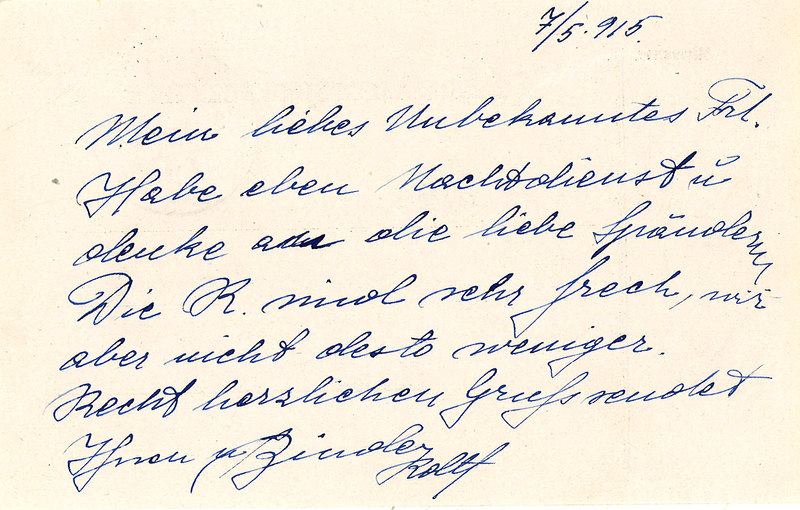 7/5. 915.
Mein liebes Unbekanntes Frl.
Habe eben Nachtdienst u
denke an die liebe Spänderin
Die R. sind sehr frech, wir
aber nicht desto weniger.
Recht herzlichen Gruss sendet
Ihnen